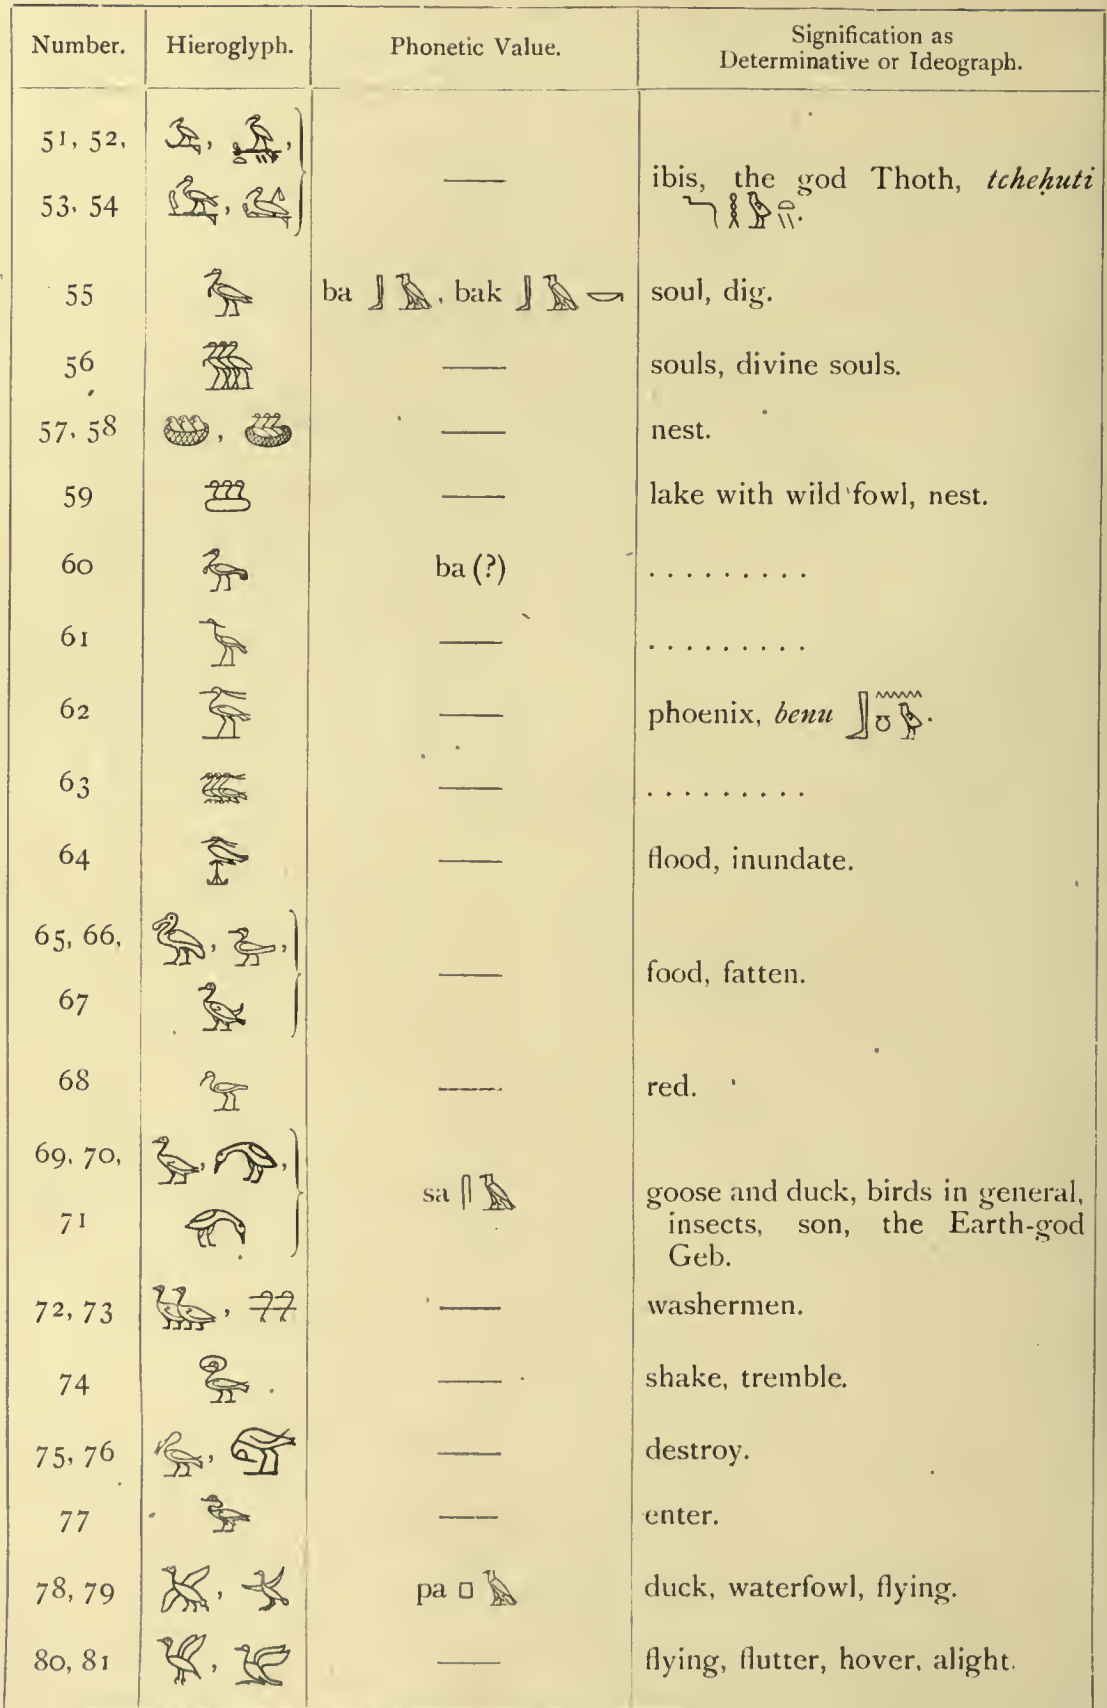 Number. Hieroglyph. Phonetic Value. Signification as
Determinative or Ideograph.
51, 52,
53, 54 — ibis, the god Thoth, tcheḥuti
55 ba, bak soul, dig.
56 — souls, divine souls.
57, 58 — nest.
59 — lake with wild fowl, nest.
60 ba (?) . . . . . . . . .
61 — . . . . . . . . .
62 — phoenix, benu
63 — . . . . . . . . .
64 — flood, inundate.
65, 66,
67 — food, fatten.
68 — red.
69, 70,
71 sa goose and duck, birds in general,
insects, son, the Earth-god
Geb.
72, 73 — washermen.
74 — shake, tremble.
75, 76 — destroy.
77 — enter.
78, 79 pa duck, waterfowl, flying.
80, 81 — flying, flutter, hover, alight.